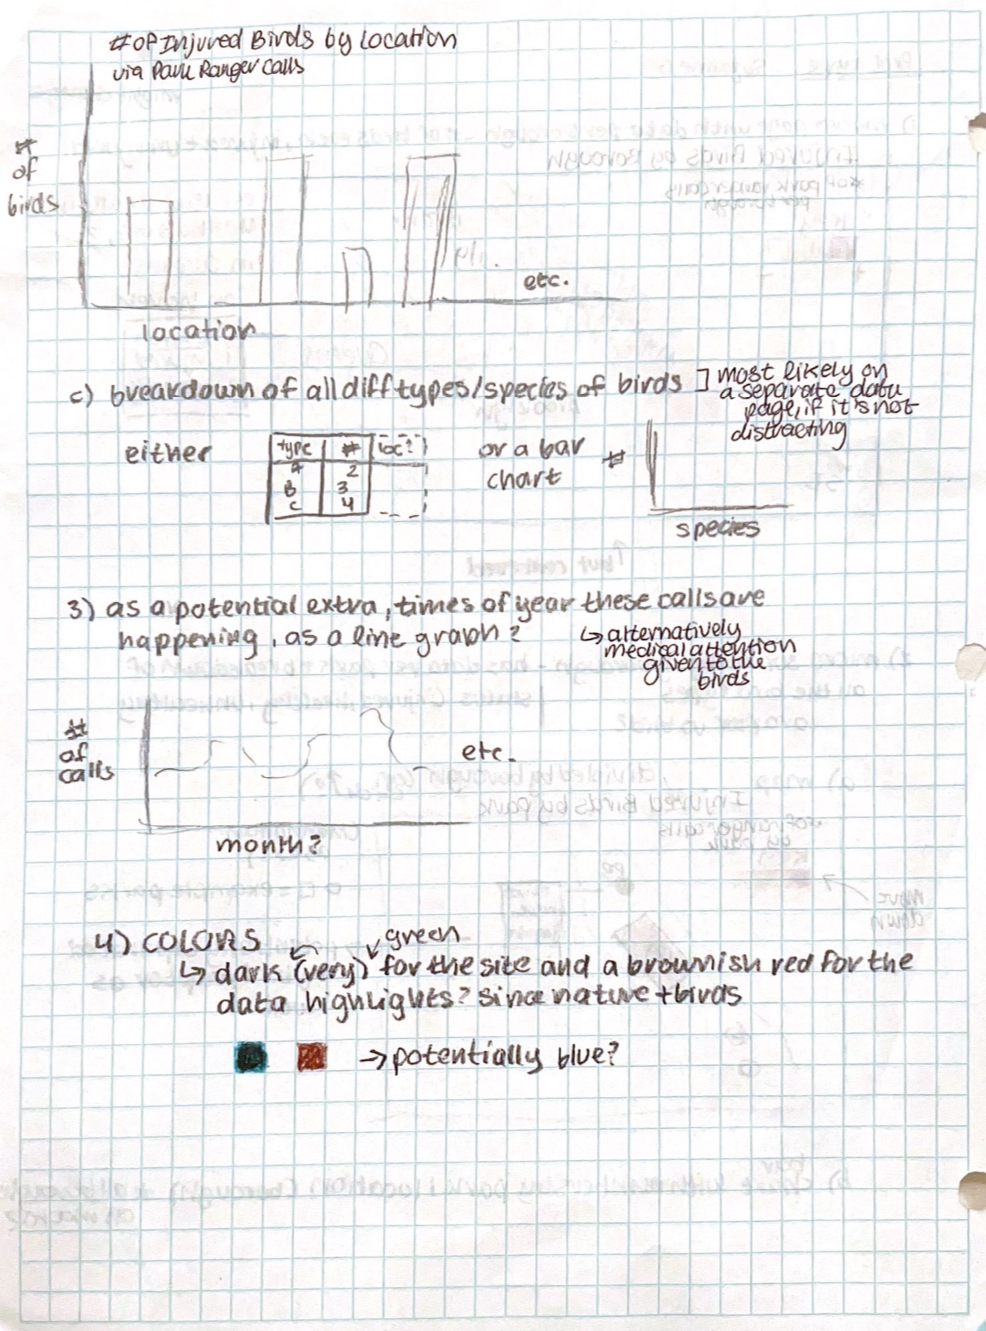 # OF Injured Birds by Location
via Park Ranger Calls
#
of
birds
etc.
location
c) breakdown of all diff types/species of birds
most likely on
a separate data
page, if it's not
distracting
either
type # loc?
A 2
B 3
C 4
or a bar
chart
#
species
3) as a potential extra, times of year these calls are
happening, as a line graph?
↳ alternatively
medical attention
given to the
birds
#
of
calls
etc.
month?
4) COLORS
green
↳ dark (very) for the site and a brownish red for the
data highlights? since nature + birds
→ potentially blue?